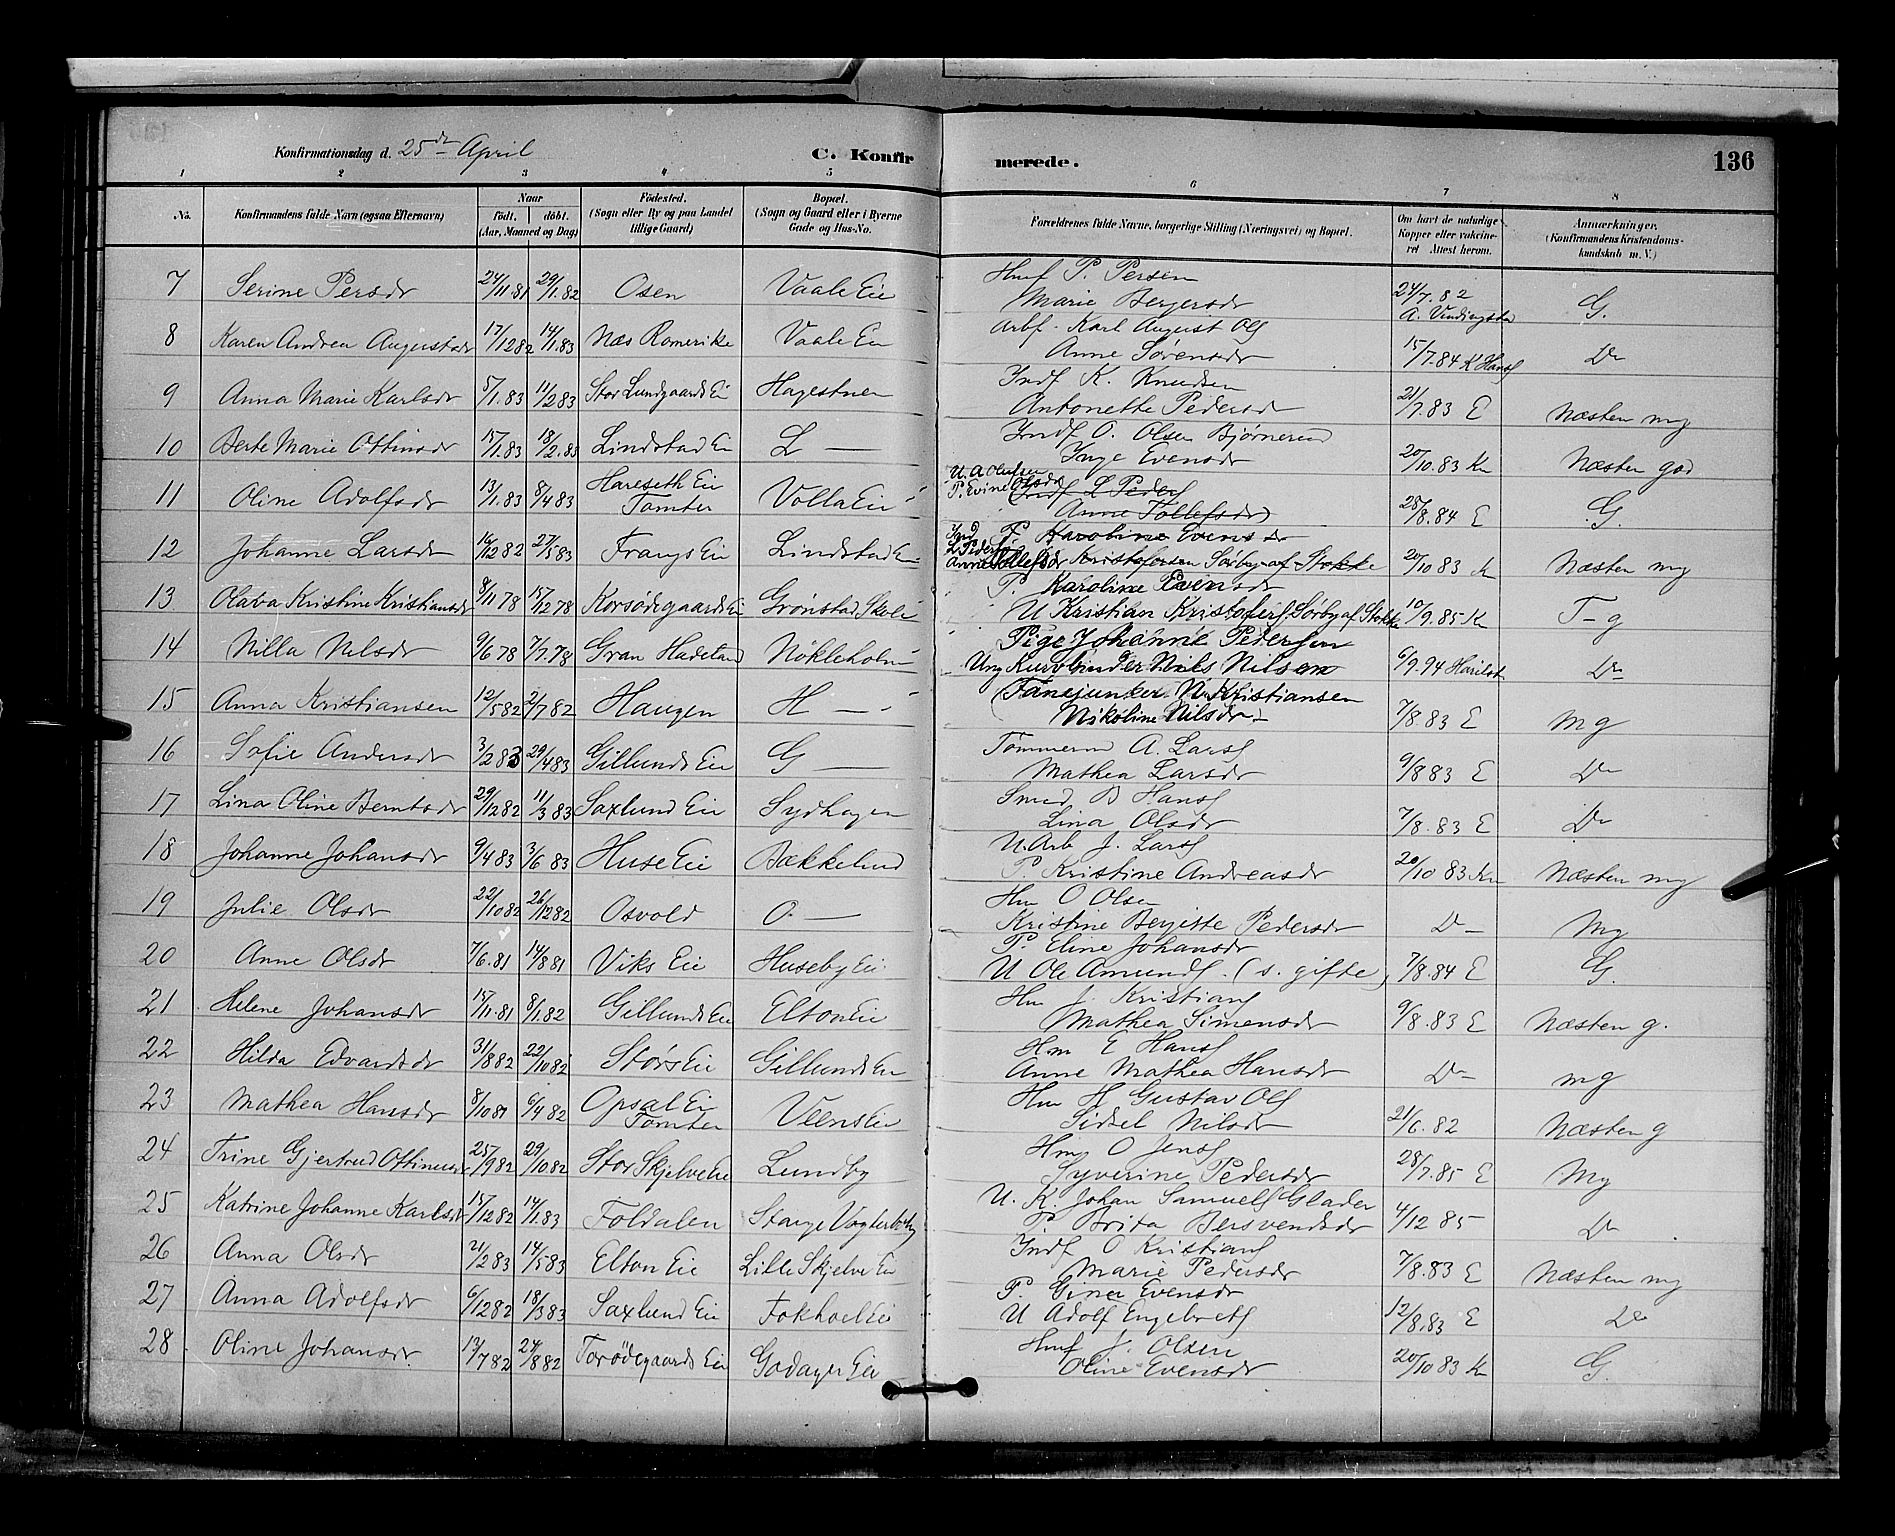 Konfirmationsdag d. 25de April C. Konfirmerede. 136
1 2 3 4 5 6 7 8
No. Konfirmandens fulde Navn (ogsaa Efternavn) Naar født. døbt. (Aar, Maaned og Dag) Fødested. (Sogn eller By og paa Landet tillige Gaard) Bopæl. (Sogn og Gaard eller i Byerne Gade og Hus-No. Forældrenes fulde Navne, borgerlige Stilling (Næringsvei) og Bopæl. Om havt de naturlige Kopper eller vakcineret Attest herom. Anmærkninger. (Konfirmandens Kristendomskundskab m. V.)
7 Serine Persdr 24/11 81 29/1. 82 Osen Vaale Eie Hmf P. Persen
Marie Bergersdr 24/7. 82 G.
8 Karen Andrea Augustsdr 17/12 82 14/1. 83 Næs Romerike Vaale Eie Arbf. Karl August Ols
Anne Sørensdr 15/7. 84 K Hans Do
9 Anna Marie Karlsdr 5/1. 83 11/2 83 Stor Lundgaards Ei Hagestuen Indf K. Knudsen
Antonette Pedersdr 21/7. 83 E Næsten mg
10 Berte Marie Ottinsdr 15/1. 83 18/2. 83 Lindstad Ei L — Indf O. Olsen Bjørnerud
Inge Evensdr 20/10. 83 Kn Næsten god
11 Oline Adolfsdr 13/1. 83 8/4 83 Hareseth Eie Tomter Volla Eie U. A Olufsen
P. Evine Olsdr (Indf L Peders
Anne Tollefsdr) 28/8. 84 E G.
12 Johanne Larsdr 16/12 82 27/5 83 Frangs Eie Lindstad E Ind P. Karoline Evensdr
L Peders Anne Tollefsdr U Kristofersen Sørby af Stokke 20/10 83 Kn Næsten mg
13 Olava Kristine Kristiansdr 8/11 78 15/12 78 Korsødegaards Ei Grønstad, Skole P. Karoline Evensdr
U Kristian Kristofers Sørby af Stokke 10/9. 85 Kn T - g
14 Nilla Nilsdr 9/6 78 7/7. 78 Gran Hadeland Nøkleholm Pige Johanne Pedersen
Ung Kurvbinder Nils Nilsen 6/9. 94 Do
15 Anna Kristiansen 12/5 82 2/7 82 Haugen H — (Fanejunker N. Kristiansen
Nikoline Nilsdr 7/8. 83 E mg
16 Sofie Andersdr 3/2 83 29/4 83 Gillunds Eie G — Tømmerm A. Lars
Mathea Larsdr 9/8 83 E Do
17 Lina Oline Berntsdr 29/12 82 11/3 83 Saxlund Eie Sydhagen Smed B Hans
Lina Olsdr 7/8. 83 E Do
18 Johanne Johansdr 9/4 83 3/6 83 Huse Eie Bækkelund U. Arb J. Lars
P. Kristine Andreasdr 20/10 83 Kn Næsten mg
19 Julie Olsdr 22/10 82 26/12 82 Osvold O. — Hm O Olsen
Kristine Bergitte Pedersdr Do Mg
20 Anne Olsdr 7/6. 81 14/8 81 Viks Eie Huseby Ei P. Eline Johansdr
U Ole Amunds. (s. gifte) 7/8. 84 E G.
21 Helene Johansdr 15/11. 81 8/1. 82 Gillunds Ei Elton Eie Hm J. Kristians
Mathea Simensdr 9/8. 83 E Næsten g.
22 Hilda Edvardsdr 31/8 82 22/10 82 Størs Eie Gillunds Ei Hm E Hans
Anne Mathea Hansdr Do mg
23 Mathea Hansdr 8/10 81 6/4 82 Opsal Ei Tomter Veens Eie Hm H Gustav Ols
Sidsel Nilsdr 21/6. 82 Næsten g
24 Trine Gjertrud Ottinusdr 25/9 82 29/10 82 Stor Skjelve Eie Lundby Hm O Jens
Syverine Pedersdr 28/7. 85 E Mg
25 Katrine Johanne Karlsdr 15/12 82 14/1. 83 Foldalen Stange Vogterbolig U. K. Johan Samuels Glader
P. Brita Bersvendsdr 4/12 85 Do
26 Anna Olsdr 21/2 83 14/5 83 Elton Eie Lille Skjelve Ei Indf O Kristians
Marie Pedersdr 7/8. 83 E Næsten mg
27 Anna Adolfsdr 6/12 82 18/3 83 Saxlund Eie Fokhoel Ei P. Gina Evensdr
U Adolf Engebrets 12/8. 83 E Do
28 Oline Johansdr 13/7 82 27/8 82 Torødegaards Eie Godager Eie Hmf J. Olsen
Oline Evensdr 20/10 83 Kn G.